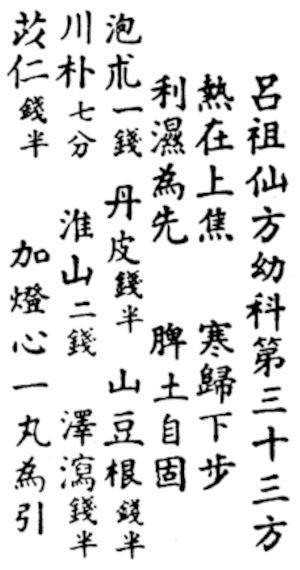 呂祖仙方幼科第三十三方
熱在上焦 寒歸下步
利濕為先 脾土自固
泡朮一錢 丹皮錢半 山豆根錢半
川朴七分 淮山二錢 澤瀉錢半
苡仁錢半 加燈心一丸為引